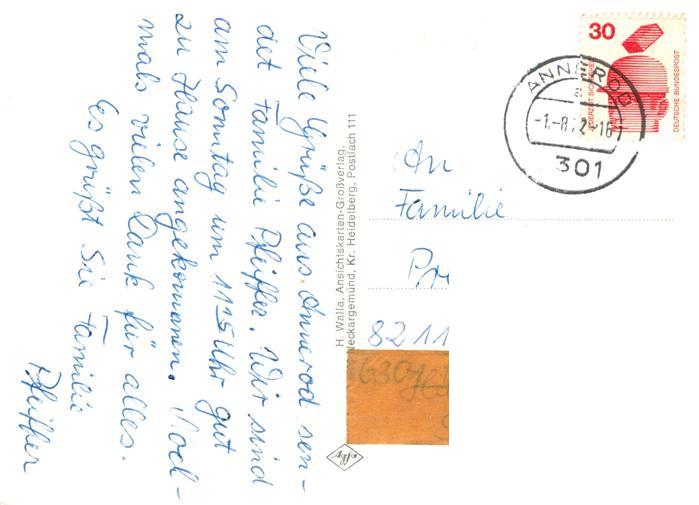 Viele Grüße aus Annerod sen-
det Familie Pfeiffer. Wir sind
am Sonntag um 11¹⁵ Uhr gut
zu Hause angekommen. Noch-
mals vielen Dank für alles.
Es grüßt Sie Familie
Pfeiffer
H. Walla, Ansichtskarten-Großverlag,
Neckargemünd, Kr. Heidelberg, Postfach 111
30
JEDERZEIT SICHERHEIT
DEUTSCHE BUNDESPOST
ANNEROD
a
-1.-8.72-16
301
An
Familie
Pr
8211
630